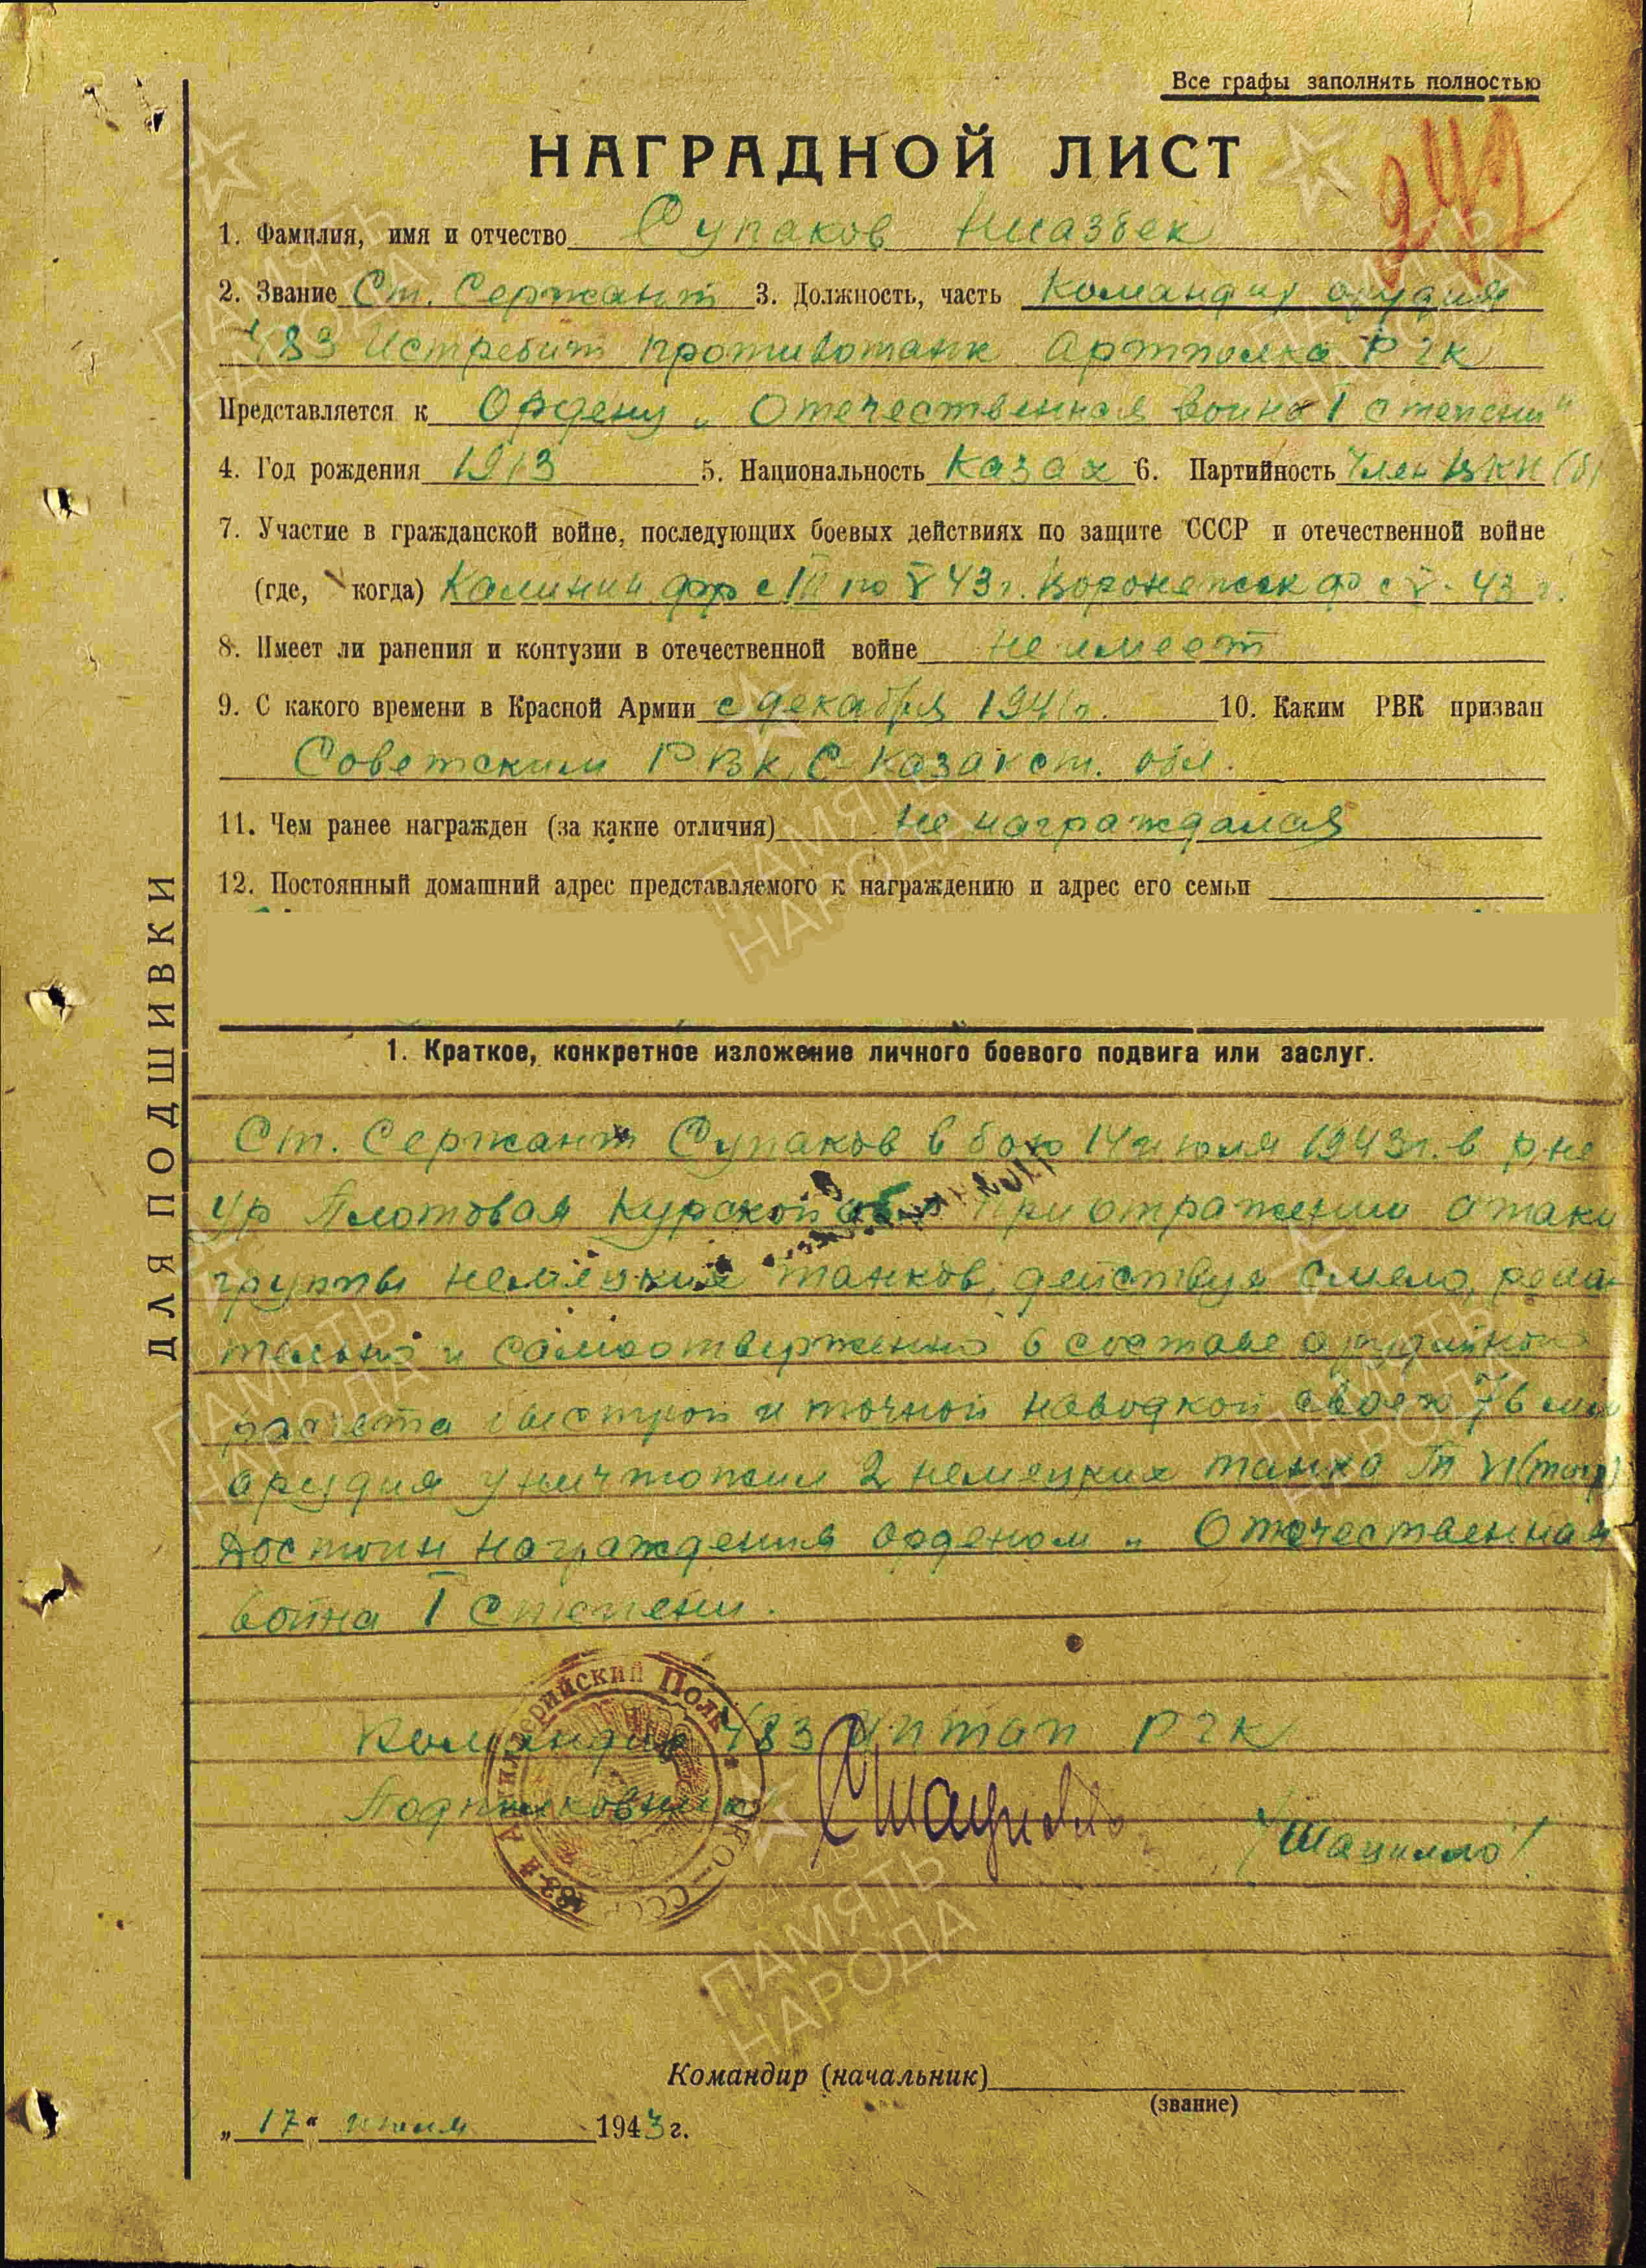 Все графы заполнять полностью
242
НАГРАДНОЙ ЛИСТ
1. Фамилия, имя и отчество Супаков Ниазбек
2. Звание Ст. Сержант 3. Должность, часть Командир орудия
483 Истребит противотанк Артполка РГК
Представляется к Ордену „Отечественная война I степени"
4. Год рождения 1913 5. Национальность Казах 6. Партийность Член ВКП(б)
7. Участие в гражданской войне, последующих боевых действиях по защите СССР и отечественной войне
(где, когда) Калинин. фр с III по V 43г. Воронежск ф с V. 43 г.
8. Имеет ли ранения и контузии в отечественной войне не имеет
9. С какого времени в Красной Армии с декабря 1941г. 10. Каким РВК призван
Советским РВК, С-Казахст. обл.
11. Чем ранее награжден (за какие отличия) не награждался
12. Постоянный домашний адрес представляемого к награждению и адрес его семьи
ДЛЯ ПОДШИВКИ
1. Краткое, конкретное изложение личного боевого подвига или заслуг.
Ст. Сержант Супаков в бою 14 июля 1943г. в р-не
ур Плотовая Курской обл при отражении атаки
группы немецких танков, действуя смело, реши-
тельно и самоотверженно в составе орудийного
расчета быстрой и точной наводкой своего 76 мм
орудия уничтожил 2 немецких танка Т VI (тигр)
Достоин награждения орденом „Отечественная
война I степени.
Командир 483 иптап РГК
Подполковник /Шацилло/
483-й Артиллерийский Полк
НКО–СССР
Командир (начальник)
(звание)
„17" июля 1943г.
ПАМЯТЬ
НАРОДА
1941-1945